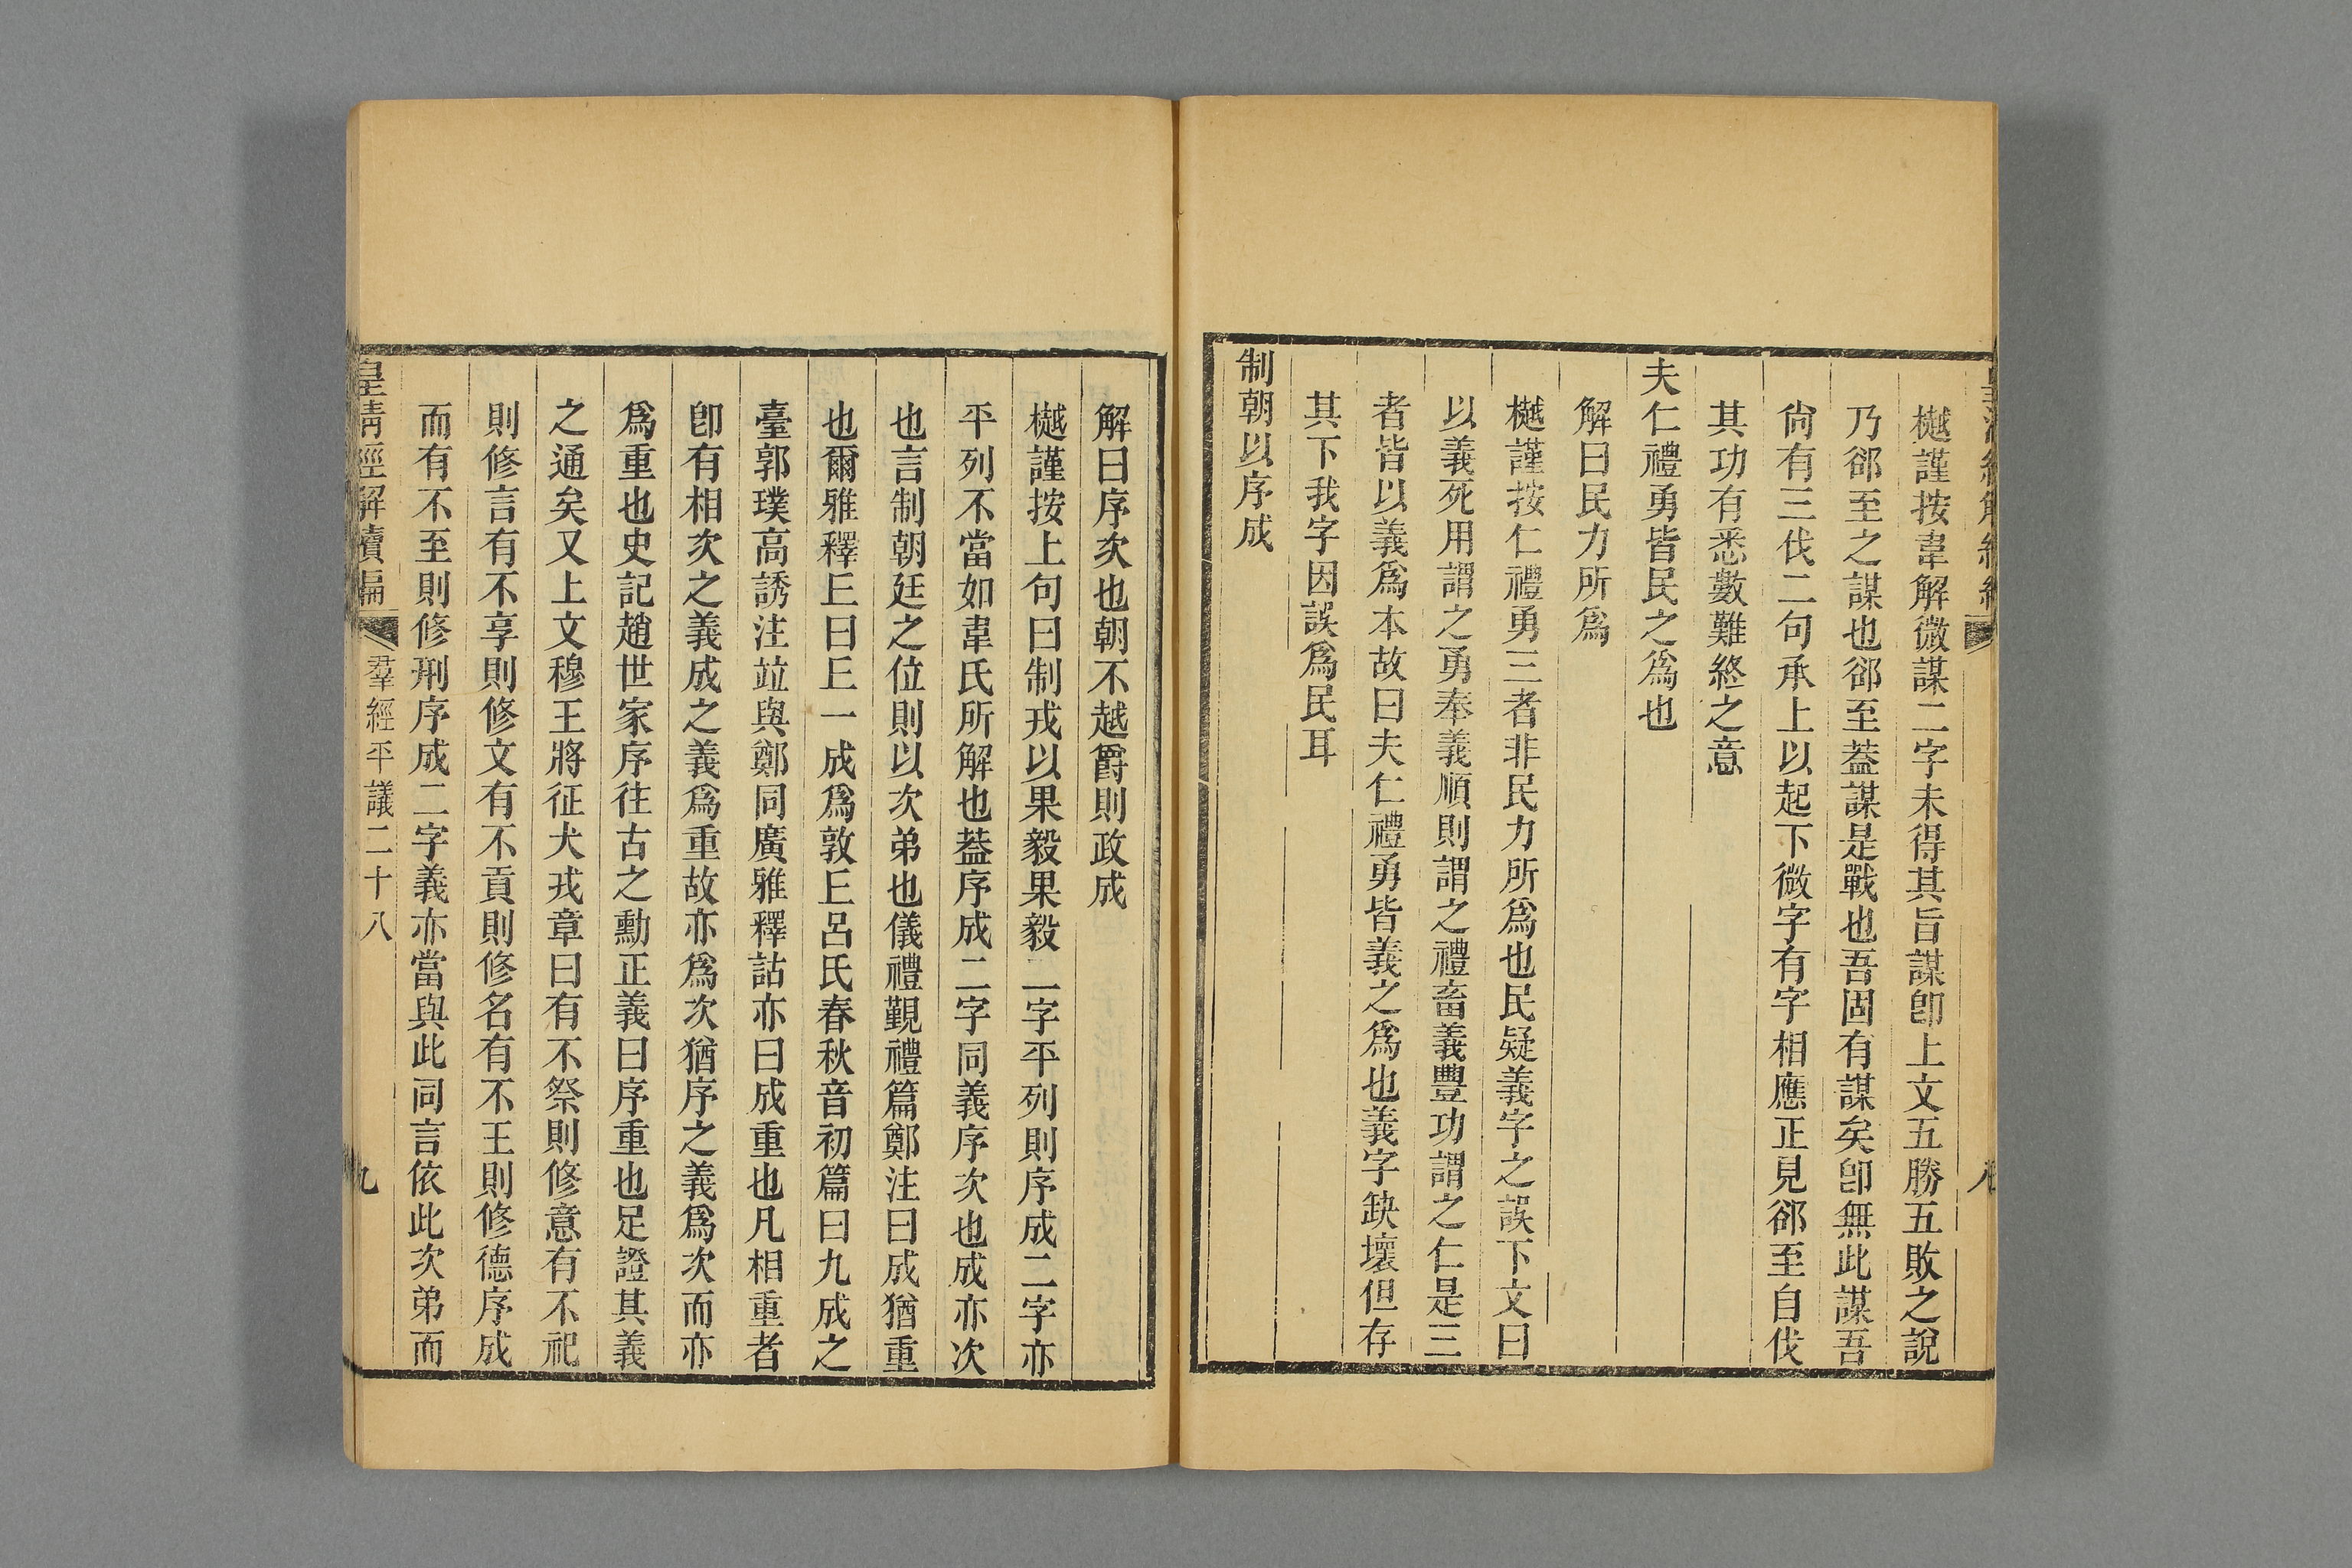 樾謹按韋解微謀二字未得其旨謀卽上文五勝五敗之說
乃郤至之謀也郤至葢謀是戰也吾固有謀矣卽無此謀吾
尙有三伐二句承上以起下微字有字相應正見郤至自伐
其功有悉數難終之意
夫仁禮勇皆民之爲也
解曰民力所爲
樾謹按仁禮勇三者非民力所爲也民疑義字之誤下文曰
以義死用謂之勇奉義順則謂之禮畜義豐功謂之仁是三
者皆以義爲本故曰夫仁禮勇皆義之爲也義字缺壞但存
其下我字因誤爲民耳
制朝以序成
解曰序次也朝不越爵則政成
樾謹按上句曰制戎以果毅果毅二字平列則序成二字亦
平列不當如韋氏所解也葢序成二字同義序次也成亦次
也言制朝廷之位則以次弟也儀禮覲禮篇鄭注曰成猶重
也爾雅釋丘曰丘一成爲敦丘呂氏春秋音初篇曰九成之
臺郭璞高誘注竝與鄭同廣雅釋詁亦曰成重也凡相重者
卽有相次之義成之義爲重故亦爲次猶序之義爲次而亦
爲重也史記趙世家序往古之勳正義曰序重也足證其義
之通矣又上文穆王將征犬戎章曰有不祭則修意有不祀
則修言有不享則修文有不貢則修名有不王則修德序成
而有不至則修刑序成二字義亦當與此同言依此次弟而
皇淸經解續編 羣經平議二十八 九